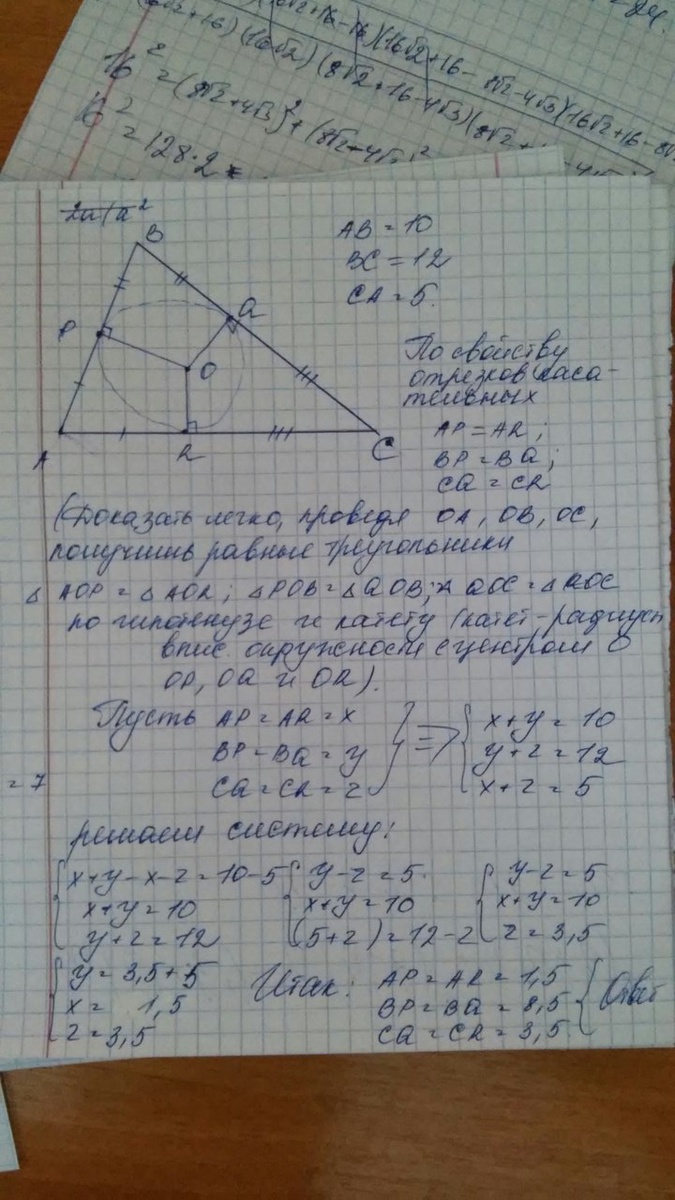 16² = (8√2+4√3)² + (8√2+4√
16²
= 128·2
2u/a²
B
P
Q
O
A
R
C
AB = 10
BC = 12
CA = 5.
По свойству
отрезков каса-
тельных
AP = AR;
BP = BQ;
CQ = CR
(Доказать легко, проведя OA, OB, OC,
получишь равные треугольники
△ AOP = △ AOR; △POB = △QOB; △ QOC = △ROC
по гипотенузе и катету (катет-радиусы
впис. окружности с центром O
OP, OQ и OR).
Пусть AP = AR = x
BP = BQ = y
CQ = CR = z
⇒
x+y = 10
y+z = 12
x+z = 5
= 7
решаем систему:
x+y-x-z = 10-5
x+y = 10
y+z = 12
y-z = 5
x+y = 10
(5+z) = 12-z
y-z = 5
x+y = 10
z = 3,5
y = 3,5+5
x = 1,5
z = 3,5
Итак: AP = AR = 1,5
BP = BQ = 8,5
CQ = CR = 3,5
Ответ